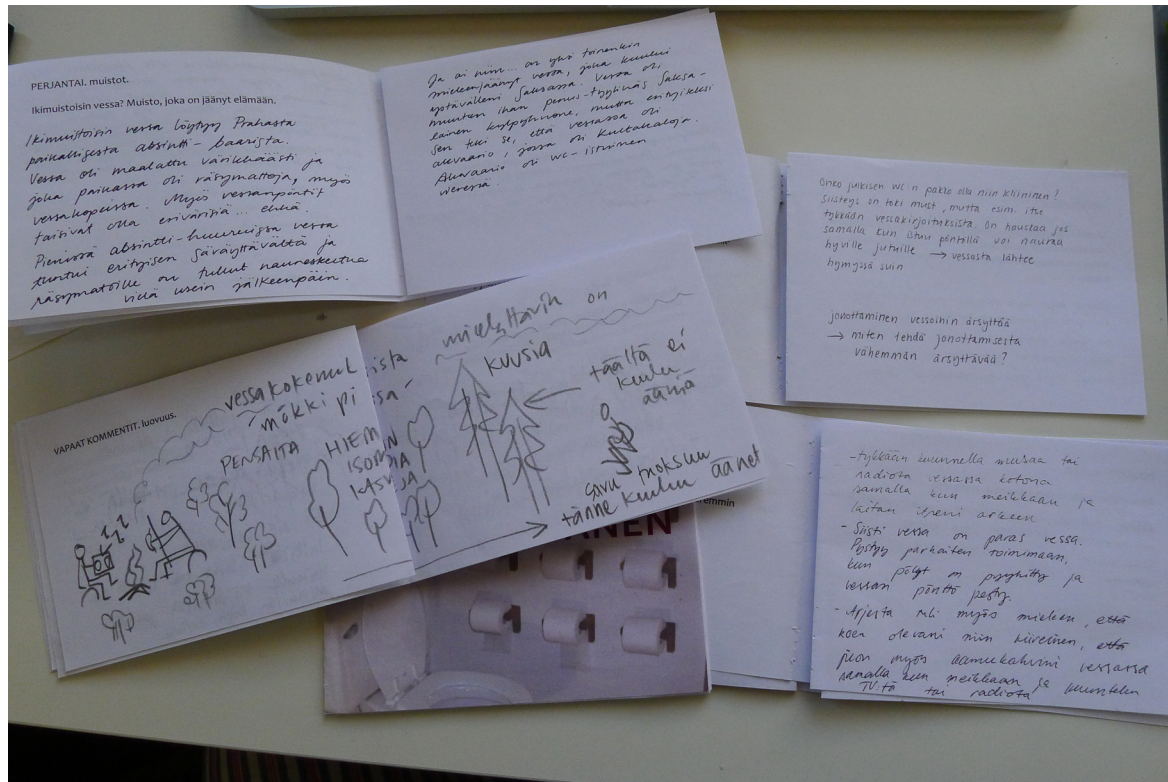 PERJANTAI. muistot.
Ikimuistoisin vessa? Muisto, joka on jäänyt elämään.
Ikimuistoisin vessa löytyy Prahasta
paikallisesta absintti-baarista.
Vessa oli maalattu värikkäästi ja
joka paikassa oli räsymattoja, myös
vessakopeissa. Myös vessanpöntöt
taisivat olla erivärisiä... ehkä.
Pienessä absintti-huuruissa vessa
tuntui erityisen säväyttävältä ja
räsymatoille on tullut naureskeltua
vielä usein jälkeenpäin.
Ja ai niin... on yksi toinenkin
mieleenjäänyt vessa, joka kuului
ystävälleni Saksassa. Vessa oli
muuten ihan perus-tyylinäs saksa-
lainen kylpyhuone, mutta erityiseksi
sen teki se, että vessassa oli
akvaario, jossa oli kultakaloja.
Akvaario oli wc-istuimen
vieressä.
Onko julkisen wc:n pakko olla niin kliininen?
Siisteys on toki must, mutta esim. itse
tykkään vessakirjoituksista. On hauskaa jos
samalla kun istuu pöntöllä voi nauraa
hyville jutuille → vessasta lähtee
hymyssä suin
jonottaminen vessoihin ärsyttää
→ miten tehdä jonottamisesta
vähemmän ärsyttävää?
VAPAAT KOMMENTIT. luovuus.
vessakokemuk
mökki pi
PENSAITA
HIEM
ISOM
KASV
ista
isä
miellyttävin on
KUUSIA
täältä ei
kuulu
ääniä
tänne kuuluu äänet
NEN
remmin
- tykkään kuunnella musaa tai
radiota vessassa kotona
samalla kun meikkaan ja
laitan itseni arkeen
- Siisti vessa on paras vessa.
Pystyy parhaiten toimimaan,
kun pölyt on pyyhitty ja
vessan pönttö pesty.
- Arjesta tuli myös mieleen, että
koen olevani niin kiireinen, että
juon myös aamukahvini vessassa
samalla kun meikkaan ja kuuntelen
TV:tä tai radiota